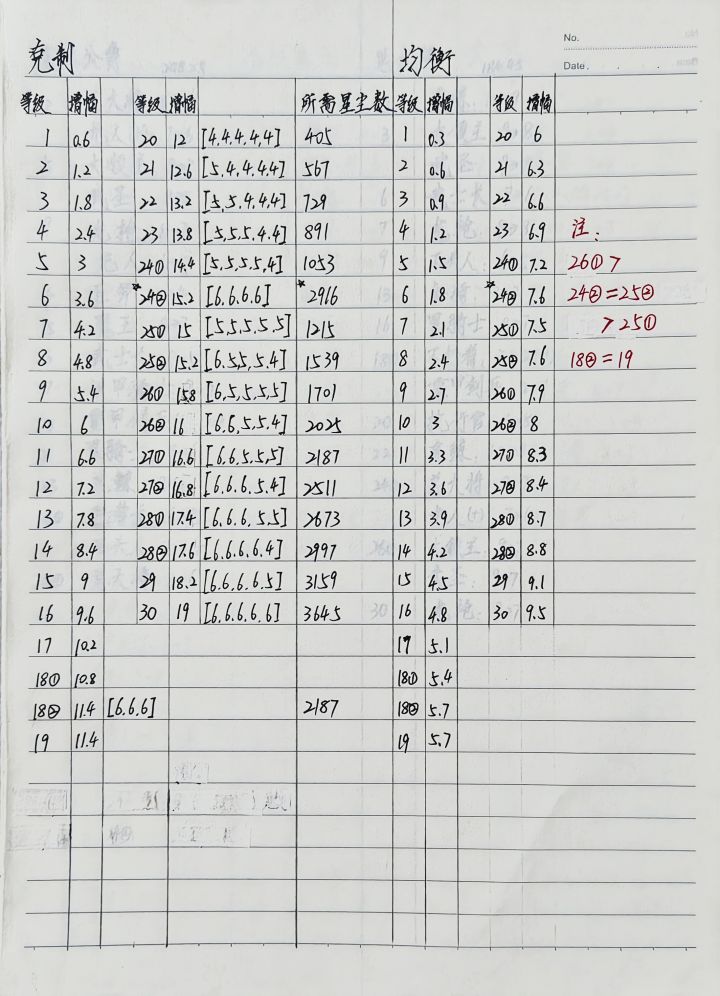 No.
竞制 均衡 Date.
等级 增幅 等级 增幅 所需星尘数 等级 增幅 等级 增幅
1 0.6 20 12 [4,4,4,4,4] 405 1 0.3 20 6
2 1.2 21 12.6 [5,4,4,4,4] 567 2 0.6 21 6.3
3 1.8 22 13.2 [5,5,4,4,4] 729 3 0.9 22 6.6
4 2.4 23 13.8 [5,5,5,4,4] 891 4 1.2 23 6.9 注:
5 3 24① 14.4 [5,5,5,5,4] 1053 5 1.5 24① 7.2 26①>
6 3.6 *24② 15.2 [6,6,6,6] *2916 6 1.8 *24② 7.6 24②=25②
7 4.2 25① 15 [5,5,5,5,5] 1215 7 2.1 25① 7.5 >25①
8 4.8 25② 15.2 [6,5,5,5,4] 1539 8 2.4 25② 7.6 18②=19
9 5.4 26① 15.8 [6,5,5,5,5] 1701 9 2.7 26① 7.9
10 6 26② 16 [6,6,5,5,4] 2025 10 3 26② 8
11 6.6 27① 16.6 [6,6,5,5,5] 2187 11 3.3 27① 8.3
12 7.2 27② 16.8 [6,6,6,5,4] 2511 12 3.6 27② 8.4
13 7.8 28① 17.4 [6,6,6,5,5] 2673 13 3.9 28① 8.7
14 8.4 28② 17.6 [6,6,6,6,4] 2997 14 4.2 28② 8.8
15 9 29 18.2 [6,6,6,6,5] 3159 15 4.5 29 9.1
16 9.6 30 19 [6,6,6,6,6] 3645 16 4.8 30 9.5
17 10.2 17 5.1
18① 10.8 18① 5.4
18② 11.4 [6,6,6] 2187 18② 5.7
19 11.4 19 5.7